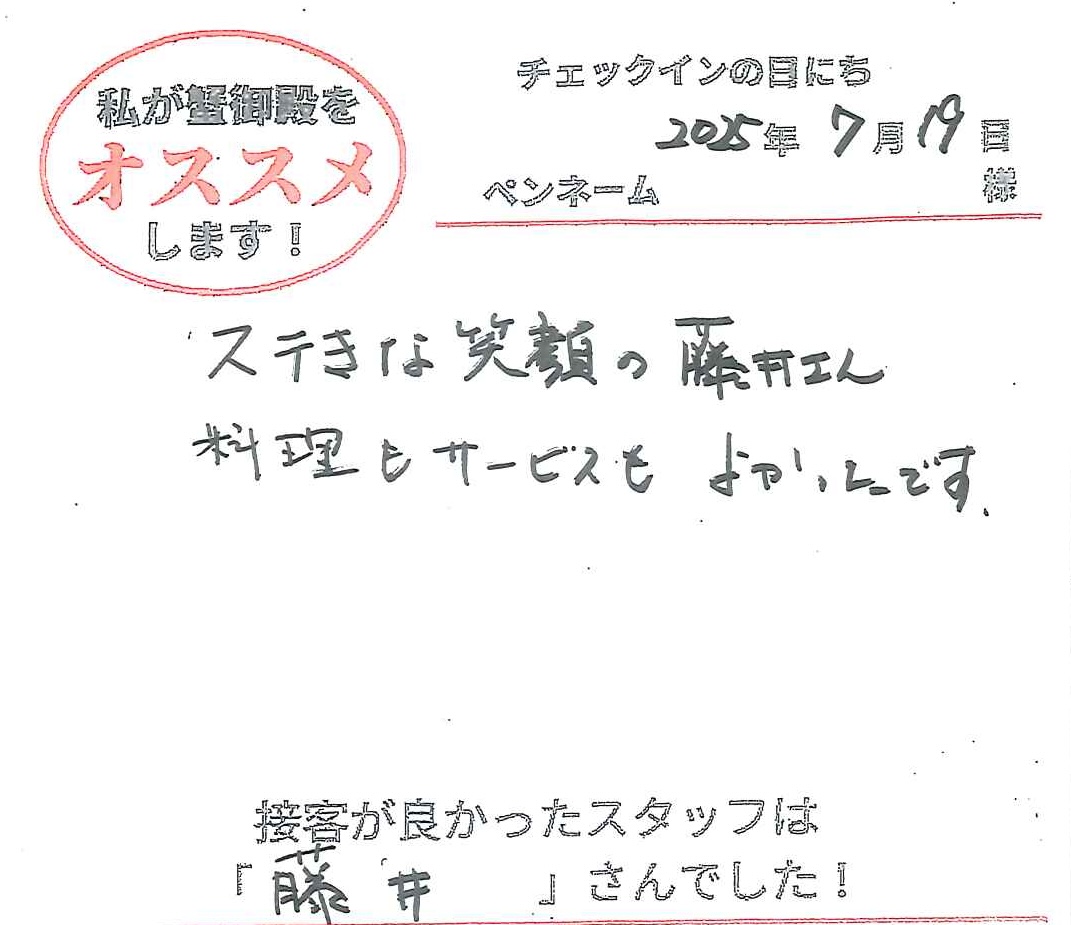 私が蟹御殿を
オススメ
します！
チェックインの日にち
2025年 7月19日
ペンネーム 様
ステきな笑顔の藤井さん
料理もサービスもよかったです。
接客が良かったスタッフは
「藤井」さんでした！